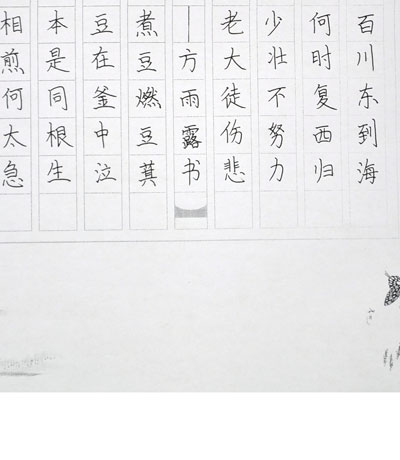 百川东到海
何时复西归
少壮不努力
老大徒伤悲
—方雨露书
煮豆燃豆萁
豆在釜中泣
本是同根生
相煎何太急